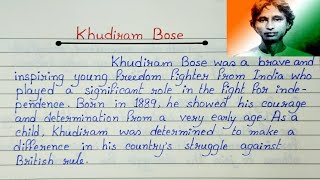 Khudiram Bose
Khudiram Bose was a brave and
inspiring young Freedom Fighter From India who
played a significant role in the Fight For inde-
pendence. Born in 1889, he showed his courage
and determination From a very early age. As a
child, Khudiram was determined to make a
difference in his country's struggle against
British rule.